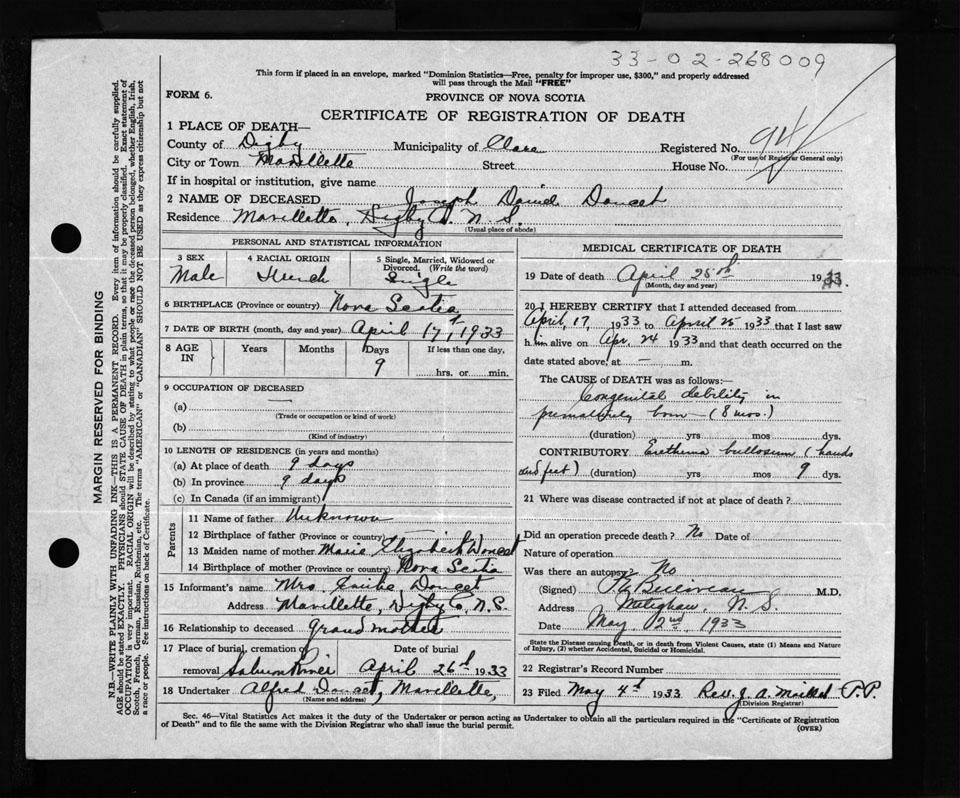 33-02-268009
This form if placed in an envelope, marked "Dominion Statistics—Free, penalty for improper use, $300," and properly addressed
will pass through the Mail "FREE"
FORM 6.
PROVINCE OF NOVA SCOTIA
CERTIFICATE OF REGISTRATION OF DEATH
1 PLACE OF DEATH—
County of Digby Municipality of Clare Registered No. 94
(For use of Registrar General only)
City or Town Mavillette Street House No.
If in hospital or institution, give name
2 NAME OF DECEASED Joseph Daniel Doucet
Residence Mavillette, Digby Co. N.S.
(Usual place of abode)
PERSONAL AND STATISTICAL INFORMATION
3 SEX 4 RACIAL ORIGIN 5 Single, Married, Widowed or
Divorced. (Write the word)
Male French Single
6 BIRTHPLACE (Province or country) Nova Scotia
7 DATE OF BIRTH (month, day and year) April 17, 1933
8 AGE IN Years Months Days If less than one day,
9 hrs. or min.
9 OCCUPATION OF DECEASED
(a) —
(Trade or occupation or kind of work)
(b)
(Kind of industry)
10 LENGTH OF RESIDENCE (in years and months)
(a) At place of death 9 days
(b) In province 9 days
(c) In Canada (if an immigrant)
Parents
11 Name of father Unknown
12 Birthplace of father (Province or country)
13 Maiden name of mother Marie Elizabeth Doucet
14 Birthplace of mother (Province or country) Nova Scotia
15 Informant's name Mrs. Doucet
Address Mavillette, Digby Co, N.S.
16 Relationship to deceased Grandmother
17 Place of burial, cremation or Date of burial
removal Salmon River April 26th 1933
18 Undertaker Alfred Doucet, Mavillette,
(Name and address)
MEDICAL CERTIFICATE OF DEATH
19 Date of death April 25th 1933.
(Month, day and year)
20 I HEREBY CERTIFY that I attended deceased from
April, 17, 1933 to April 25 1933 that I last saw
him alive on Apr. 24 1933 and that death occurred on the
date stated above, at — m.
The CAUSE of DEATH was as follows:—
Congenital debility in
prematurely born — (8 mos.)
(duration) yrs mos dys.
CONTRIBUTORY Erethema bullosum (hands
and feet) (duration) yrs mos 9 dys.
21 Where was disease contracted if not at place of death?
Did an operation precede death? No Date of
Nature of operation
Was there an autopsy? No
(Signed) M.D.
Address Meteghan, N.S.
Date May 2nd 1933
State the Disease causing Death, or in death from Violent Causes, state (1) Means and Nature
of Injury, (2) whether Accidental, Suicidal or Homicidal.
22 Registrar's Record Number
23 Filed May 4th 1933 Rev. J. A. Maillet P.P.
(Division Registrar)
Sec. 46—Vital Statistics Act makes it the duty of the Undertaker or person acting as Undertaker to obtain all the particulars required in the "Certificate of Registration
of Death" and to file the same with the Division Registrar who shall issue the burial permit.
(OVER)
MARGIN RESERVED FOR BINDING
N.B.—WRITE PLAINLY WITH UNFADING INK—THIS IS A PERMANENT RECORD. Every item of information should be carefully supplied.
AGE should be stated EXACTLY. PHYSICIANS should STATE CAUSE OF DEATH in plain terms, so that it may be properly classified. Exact statement of
OCCUPATION is very important. RACIAL ORIGIN will be described by stating to what people or race the deceased person belonged, whether English, Irish,
Scotch, French, German, Russian, Ruthenian, etc. The terms "AMERICAN" or "CANADIAN" SHOULD NOT BE USED as they express citizenship but not
a race or people. See instructions on back of Certificate.